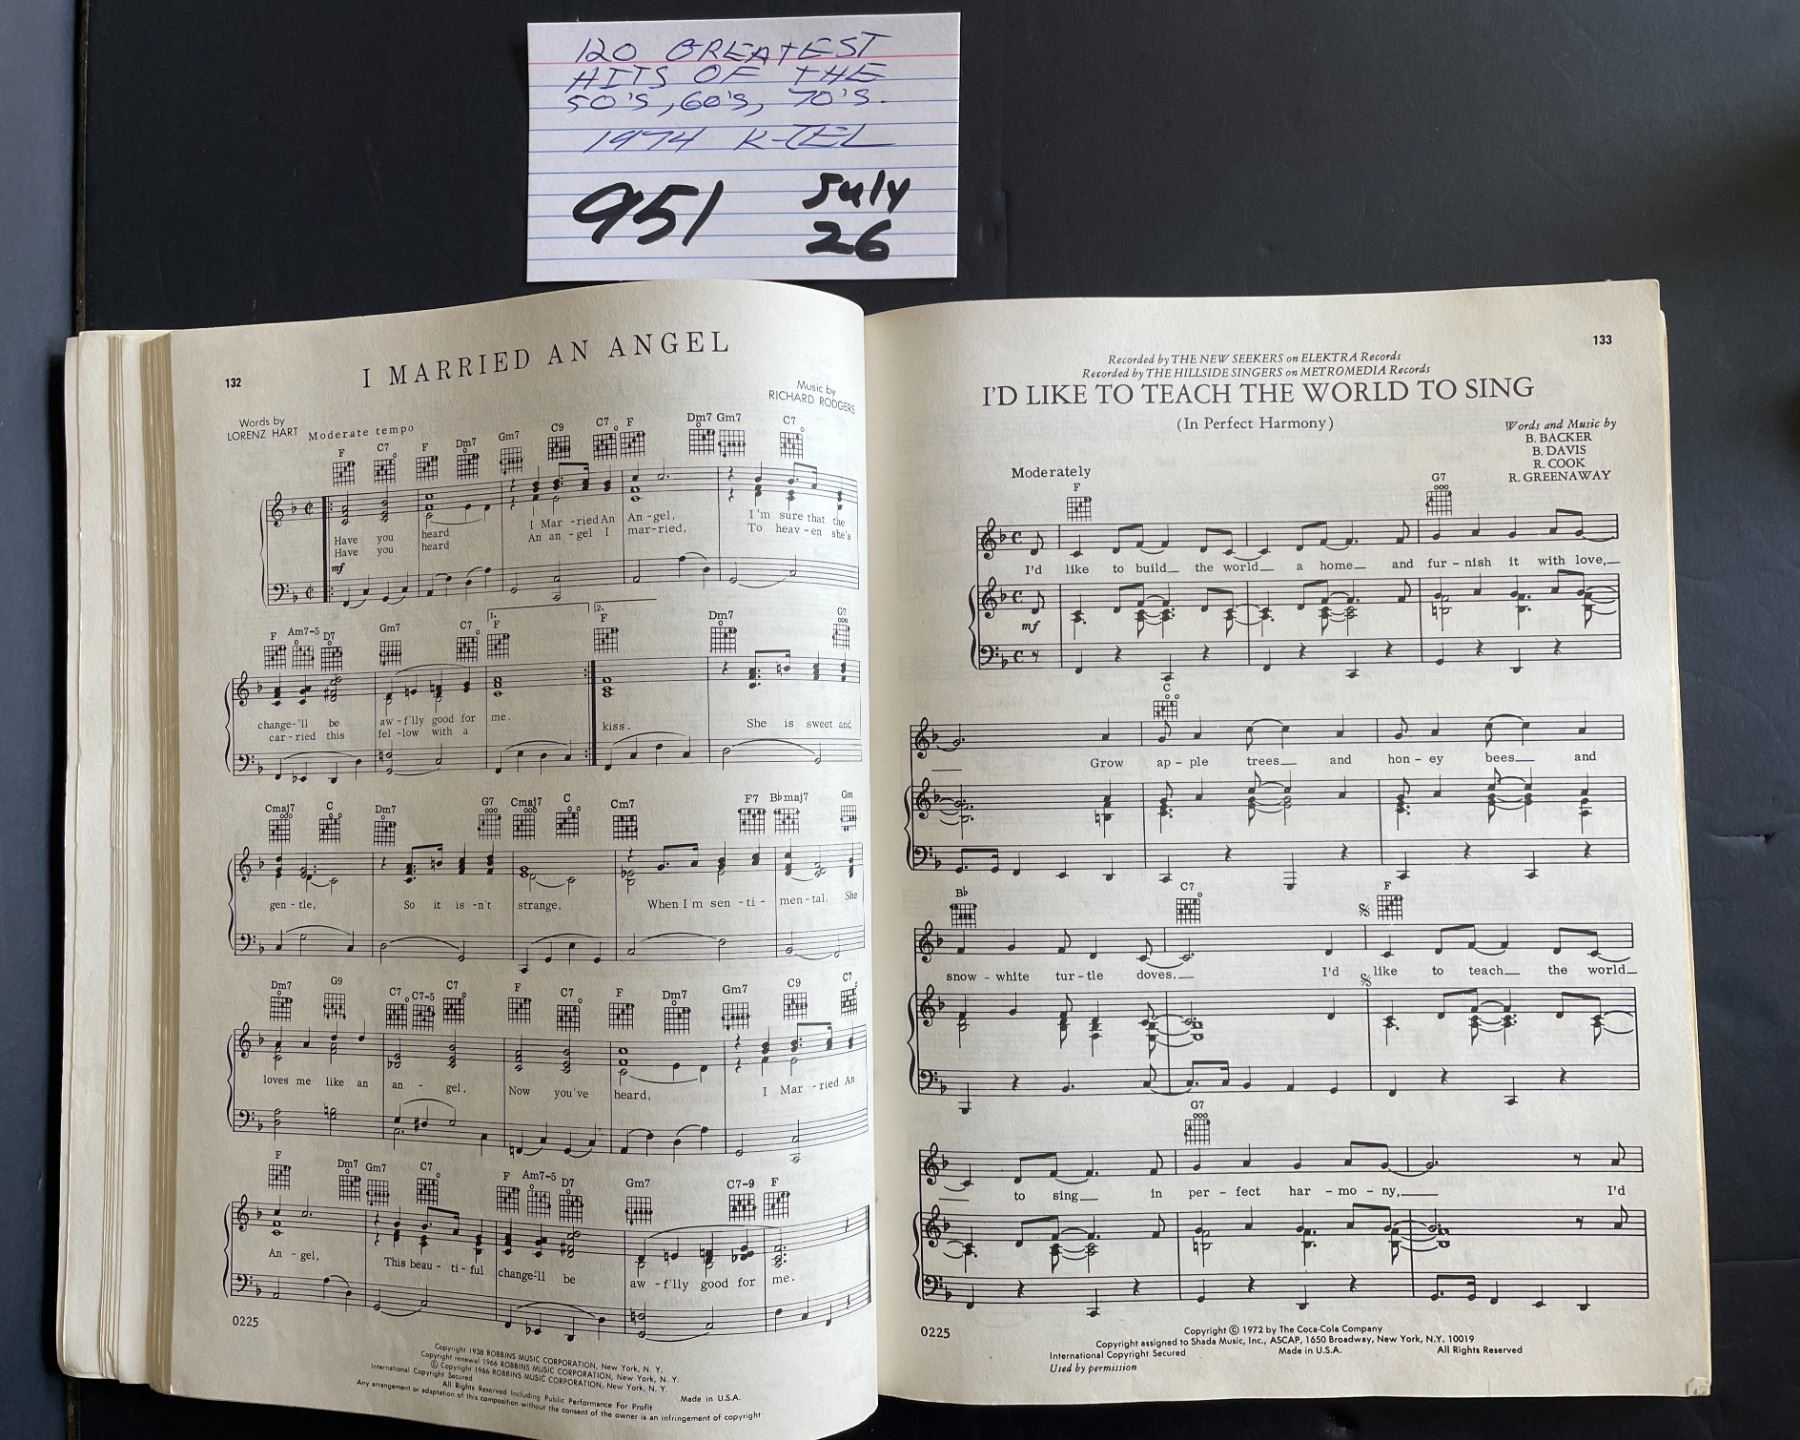 120 GREATEST
HITS OF THE
50'S, 60'S, 70'S.
1974 K-TEL
951 July
26
132
I MARRIED AN ANGEL
Words by
LORENZ HART
Music by
RICHARD RODGERS
Moderate tempo
F C7 F Dm7 Gm7 C9 C7 F Dm7 Gm7 C7
Have you heard I Mar-ried An An-gel, I'm sure that the
Have you heard An an-gel I mar-ried, To heav-en she's
mf
1. 2.
F Am7-5 D7 Gm7 C7 F F Dm7 G7
change-'ll be aw-f'lly good for me. kiss. She is sweet and
car-ried this fel-low with a
Cmaj7 C Dm7 G7 Cmaj7 C Cm7 F7 Bbmaj7 Gm
gen-tle, So it is-n't strange, When I'm sen-ti-men-tal, She
Dm7 G9 C7 C7-5 C7 F C7 F Dm7 Gm7 C9 C7
loves me like an an-gel. Now you've heard, I Mar-ried An
F Dm7 Gm7 C7 F Am7-5 D7 Gm7 C7-9 F
An-gel, This beau-ti-ful change-'ll be aw-f'lly good for me.
0225
Copyright 1938 ROBBINS MUSIC CORPORATION, New York, N. Y.
Copyright renewal 1966 ROBBINS MUSIC CORPORATION, New York, N. Y.
© Copyright 1966 ROBBINS MUSIC CORPORATION, New York, N. Y.
International Copyright Secured Made in U.S.A.
All Rights Reserved Including Public Performance For Profit
Any arrangement or adaptation of this composition without the consent of the owner is an infringement of copyright
133
Recorded by THE NEW SEEKERS on ELEKTRA Records
Recorded by THE HILLSIDE SINGERS on METROMEDIA Records
I'D LIKE TO TEACH THE WORLD TO SING
(In Perfect Harmony)
Words and Music by
B. BACKER
B. DAVIS
R. COOK
R. GREENAWAY
Moderately
F G7
I'd like to build the world a home and fur-nish it with love,
mf
C
Grow ap-ple trees and hon-ey bees and
Bb C7 F
snow-white tur-tle doves. I'd like to teach the world
G7
to sing in per-fect har-mo-ny, I'd
0225
Copyright © 1972 by The Coca-Cola Company
Copyright assigned to Shada Music, Inc., ASCAP, 1650 Broadway, New York, N.Y. 10019
International Copyright Secured Made in U.S.A. All Rights Reserved
Used by permission